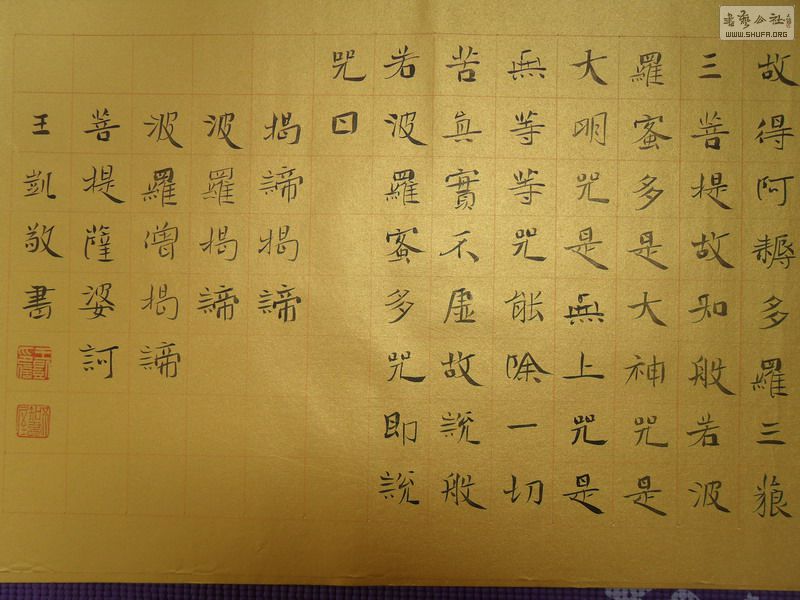 故得阿耨多羅三藐
三菩提故知般若波
羅蜜多是大神咒是
大明咒是無上咒是
無等等咒能除一切
苦真實不虛故說般
若波羅蜜多咒即說
咒曰
揭諦揭諦
波羅揭諦
波羅僧揭諦
菩提薩婆訶
王凱敬書
書藝公社
WWW.SHUFA.ORG